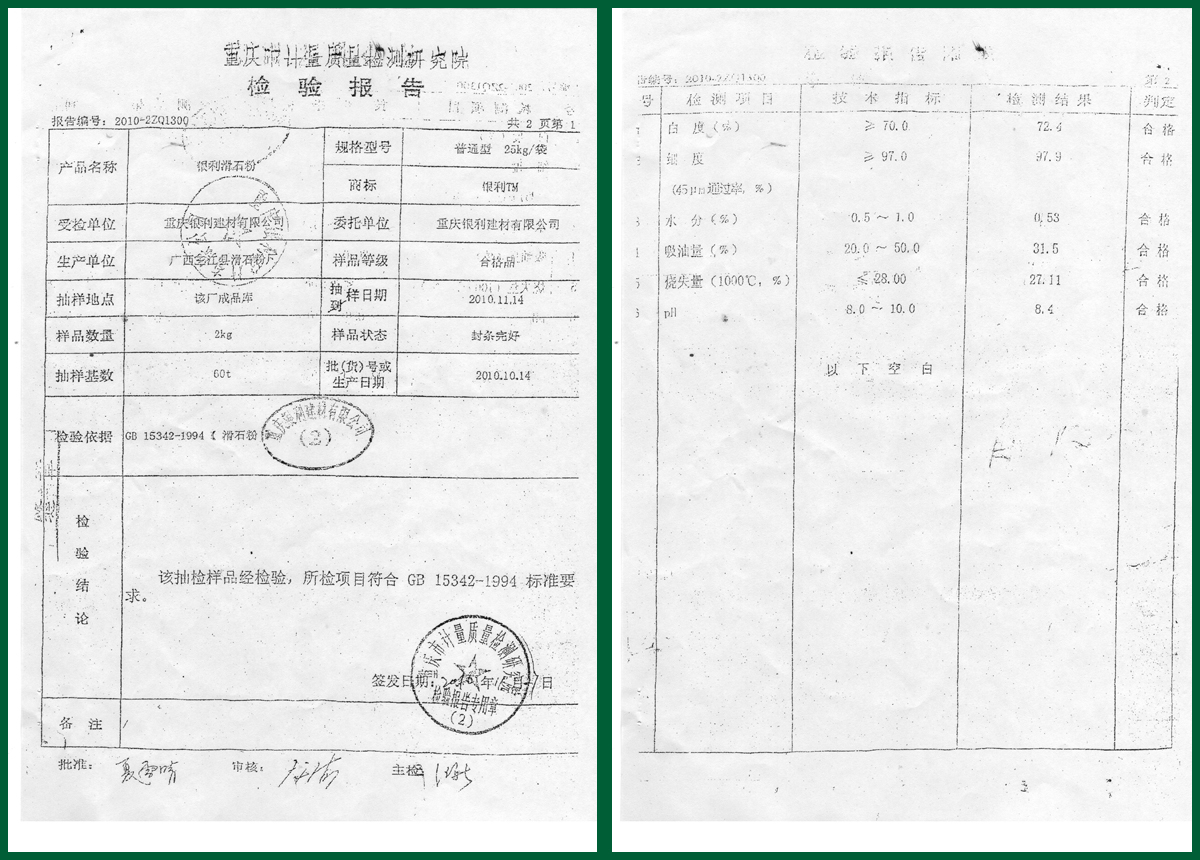 重庆市计量质量检测研究院
检验报告
报告编号：2010-2ZQ1300 共 2 页第 1
产品名称 银利滑石粉 规格型号 普通型 25kg/袋
商标 银利TM
受检单位 重庆银利建材有限公司 委托单位 重庆银利建材有限公司
生产单位 样品等级 合格品
抽样地点 该厂成品库 抽到样日期 2010.11.14
样品数量 2kg 样品状态 封条完好
抽样基数 60t 批(货)号或生产日期 2010.10.14
检验依据 GB 15342-1994《 滑石粉
重庆银利建材有限公司
(2)
检验结论
该抽检样品经检验，所检项目符合 GB 15342-1994 标准要
求。
重庆市计量质量检测研究院
签发日期： 年 日
检验报告专用章
(2)
备 注 /
批准： 审核： 主检：
检 验 报 告
告编号：2010-2ZQ1300 第 2
号 检 测 项 目 技 术 指 标 检 测 结 果 判定
白 度（%） ≥ 70.0 72.4 合 格
细 度 ≥ 97.0 97.9 合 格
（45μm通过率，%）
水 分（%） 0.5 ～ 1.0 0.53 合 格
吸油量（%） 20.0 ～ 50.0 31.5 合 格
烧失量（1000℃，%） ≤ 28.00 27.11 合 格
pH 8.0 ～ 10.0 8.4 合 格
以 下 空 白